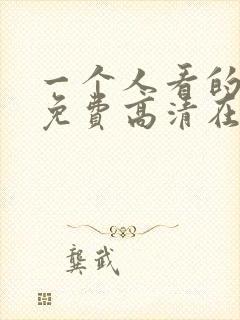 一个人看的
免费高清在
龚武